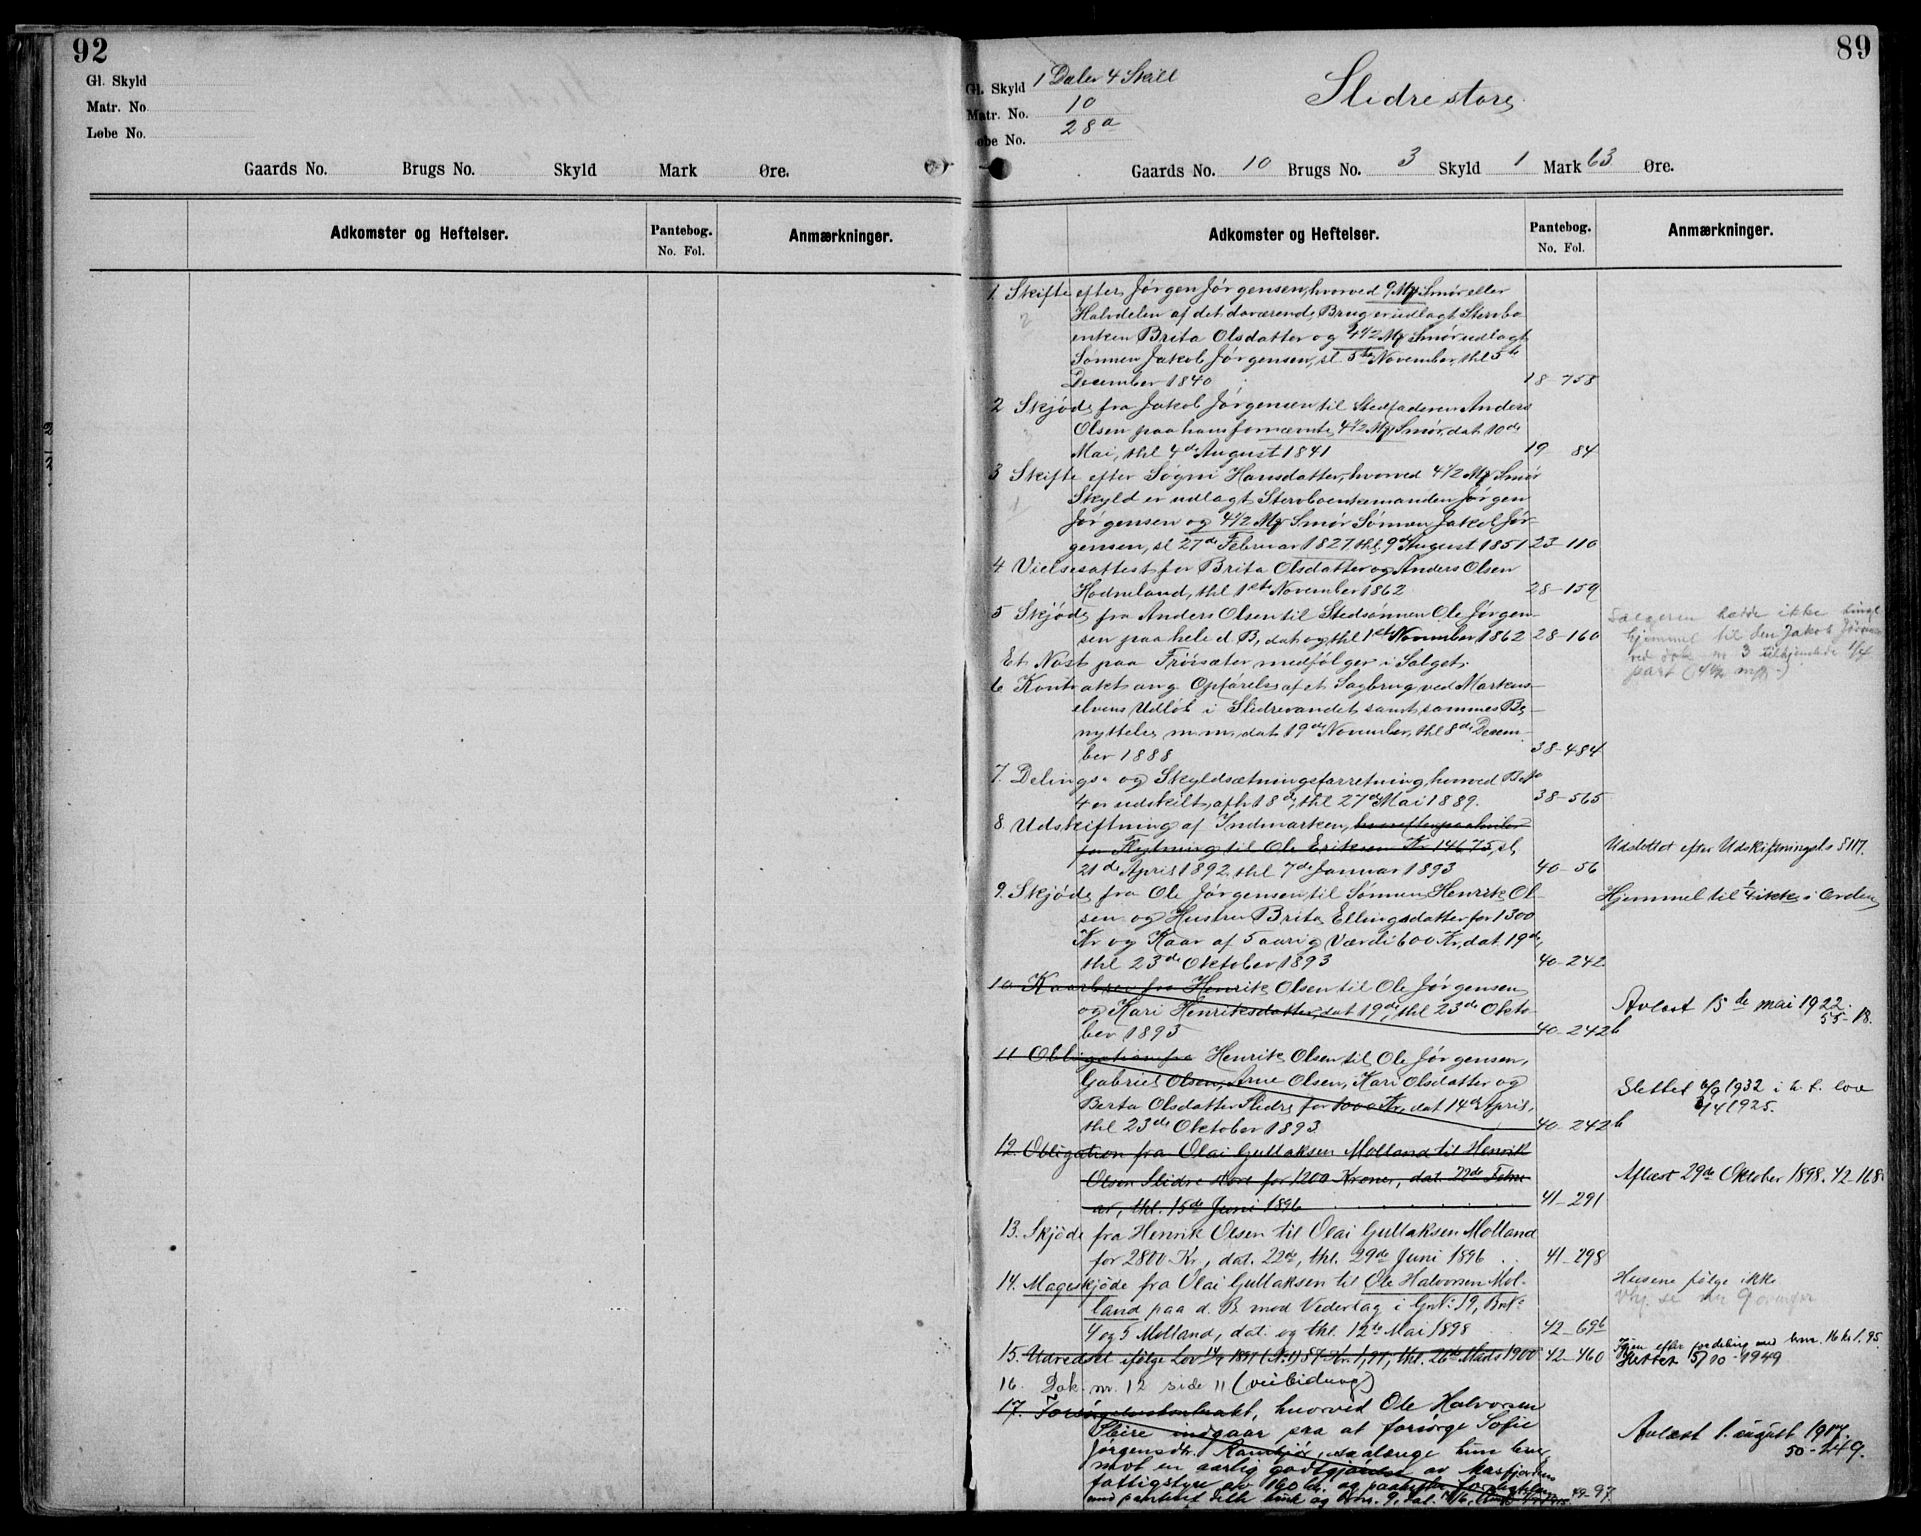 92
Gl. Skyld
Matr. No
Løbe No.
Gaards No. Brugs No. Skyld Mark Øre.
Adkomster og Heftelser. Pantebog. No. Fol. Anmærkninger.
89
Gl. Skyld 1 Daler 4 Skill
Matr. No. 10
Løbe No. 28a
Slidrestore
Gaards No. 10 Brugs No. 3 Skyld 1 Mark 63 Øre.
Adkomster og Heftelser. Pantebog. No. Fol. Anmærkninger.
1. Skifte efter Jørgen Jørgensen, hvorved 9 Mk Smør eller
Halvdelen af det daværende Brug er udlagt Stervbo
enken Brita Olsdatter og 4 1/2 Mk Smør udlagt
Sønnen Jakob Jørgensen, sl 5te November, thl 5te
December 1840 18-758
2 Skjøde fra Jakob Jørgensen til Stedfaderen Anders
Olsen paa hans fornævnte 4 1/2 Mk Smør, dat 10de
Mai, thl 4de August 1841 19 84
3 Skifte efter Sogni Hansdatter, hvorved 4 1/2 Mk Smør
Skyld er udlagt Stervboenkemanden Jørgen
Jørgensen og 4 1/2 Mk Smør Sønnen Jakob Jør-
gensen, sl 27de Februar 1827, thl 9de August 1851 23-110
4 Vielsesattest for Brita Olsdatter og Anders Olsen
Hodneland, thl 1ste November 1862 28-159
5 Skjøde fra Anders Olsen til Stedsønnen Ole Jørgen-
sen paa hele d B, dat og thl 1ste November 1862 28-160
Et Nøst paa Frøisæter medfølger i Salget.
Sælgeren hadde ikke tingl
hjemmel til den Jakob Jørgensen
ved dok nr 3 tilhjemlede 1/4
part (4 1/2 mk)
6 Kontrakt ang Opførelse af et Sagbrug ved Markus-
elvens Udløb i Slidrevandet samt sammes Be-
nyttelse m.m., dat 19de November, thl 8de Decem-
ber 1888 38-484
7. Delings- og Skyldsætningsforretning, hvorved Bno
4 er udskilt, afh 18de, thl 27de Mai 1889. 38-565
8 Udskiftning af Indmarken, hvorefter paahviler
for Flytning til Ole Eriksen Kr 146.75, sl
21de April 1892, thl 7de Januar 1893 40-56
Udslettet efter Udskiftningsls § 117.
9. Skjøde fra Ole Jørgensen til Sønnen Henrik Ol-
sen og Hustru Brita Ellingsdatter for 1300
Kr og Kaar af 5 aarig Værdi 600 Kr, dat 19de,
thl 23de Oktober 1893 40-242
Hjemmel til 1/4 ikke i Orden
10 Kaarbrev fra Henrik Olsen til Ole Jørgensen
og Kari Henriksdatter, dat 19de, thl 23de Okto-
ber 1893 40-242b
Avlæst 15de mai 1922.
55-18.
11 Obligation fra Henrik Olsen til Ole Jørgensen,
Gabriel Olsen, Arne Olsen, Kari Olsdatter og
Berta Olsdatter Slidre for 1000 Kr, dat 14de April,
thl 23de Oktober 1893 40-242b
Slettet 6/9 1932 i h. t. lov
3/4 1925.
12. Obligation fra Olai Gullaksen Molland til Henrik
Olsen Slidre store for 1200 Kroner, dat. 22de Febru
ar, thl. 15de Juni 1896 41-291
Aflæst 29de Oktober 1898. 42-168
13. Skjøde fra Henrik Olsen til Olai Gullaksen Molland
for 2800 Kr, dat. 22de, thl. 29de Juni 1896 41-298
14. Mageskjøde fra Olai Gullaksen til Ole Halvorsen Mol-
land paa d. B. mod Vederlag i Gno 19, Bno
4 og 5 Molland, dat. og thl. 12te Mai 1898 42-69b
Husene følge ikke
Vhj. se nr 9 ovenfor
15. Udredsel ifølge Lov 14/7 1894 (No 1) § 7 Kr. 1,97, thl. 26de Marts 1900 42-460
Igjen efter fordeling med bnr. 16 kr 1.95.
Slettet 5/10-1949
16. Dok. nr. 12 side 11 (veibidrag)
17. Forsørgelseskontrakt, hvorved Ole Halvorsen
Slire indgaar paa at forsørge Sofie
Jørgensdtr. Ramkjør, saalænge hun lever
mot en aarlig godtgjørelse av Masfjordens
fattigstyre av 160 kr. og paahefte forpligtelsen
med panteret dette bruk og bnr. 9, dat. 49-97
Avlæst 1. august 1917.
50-249.